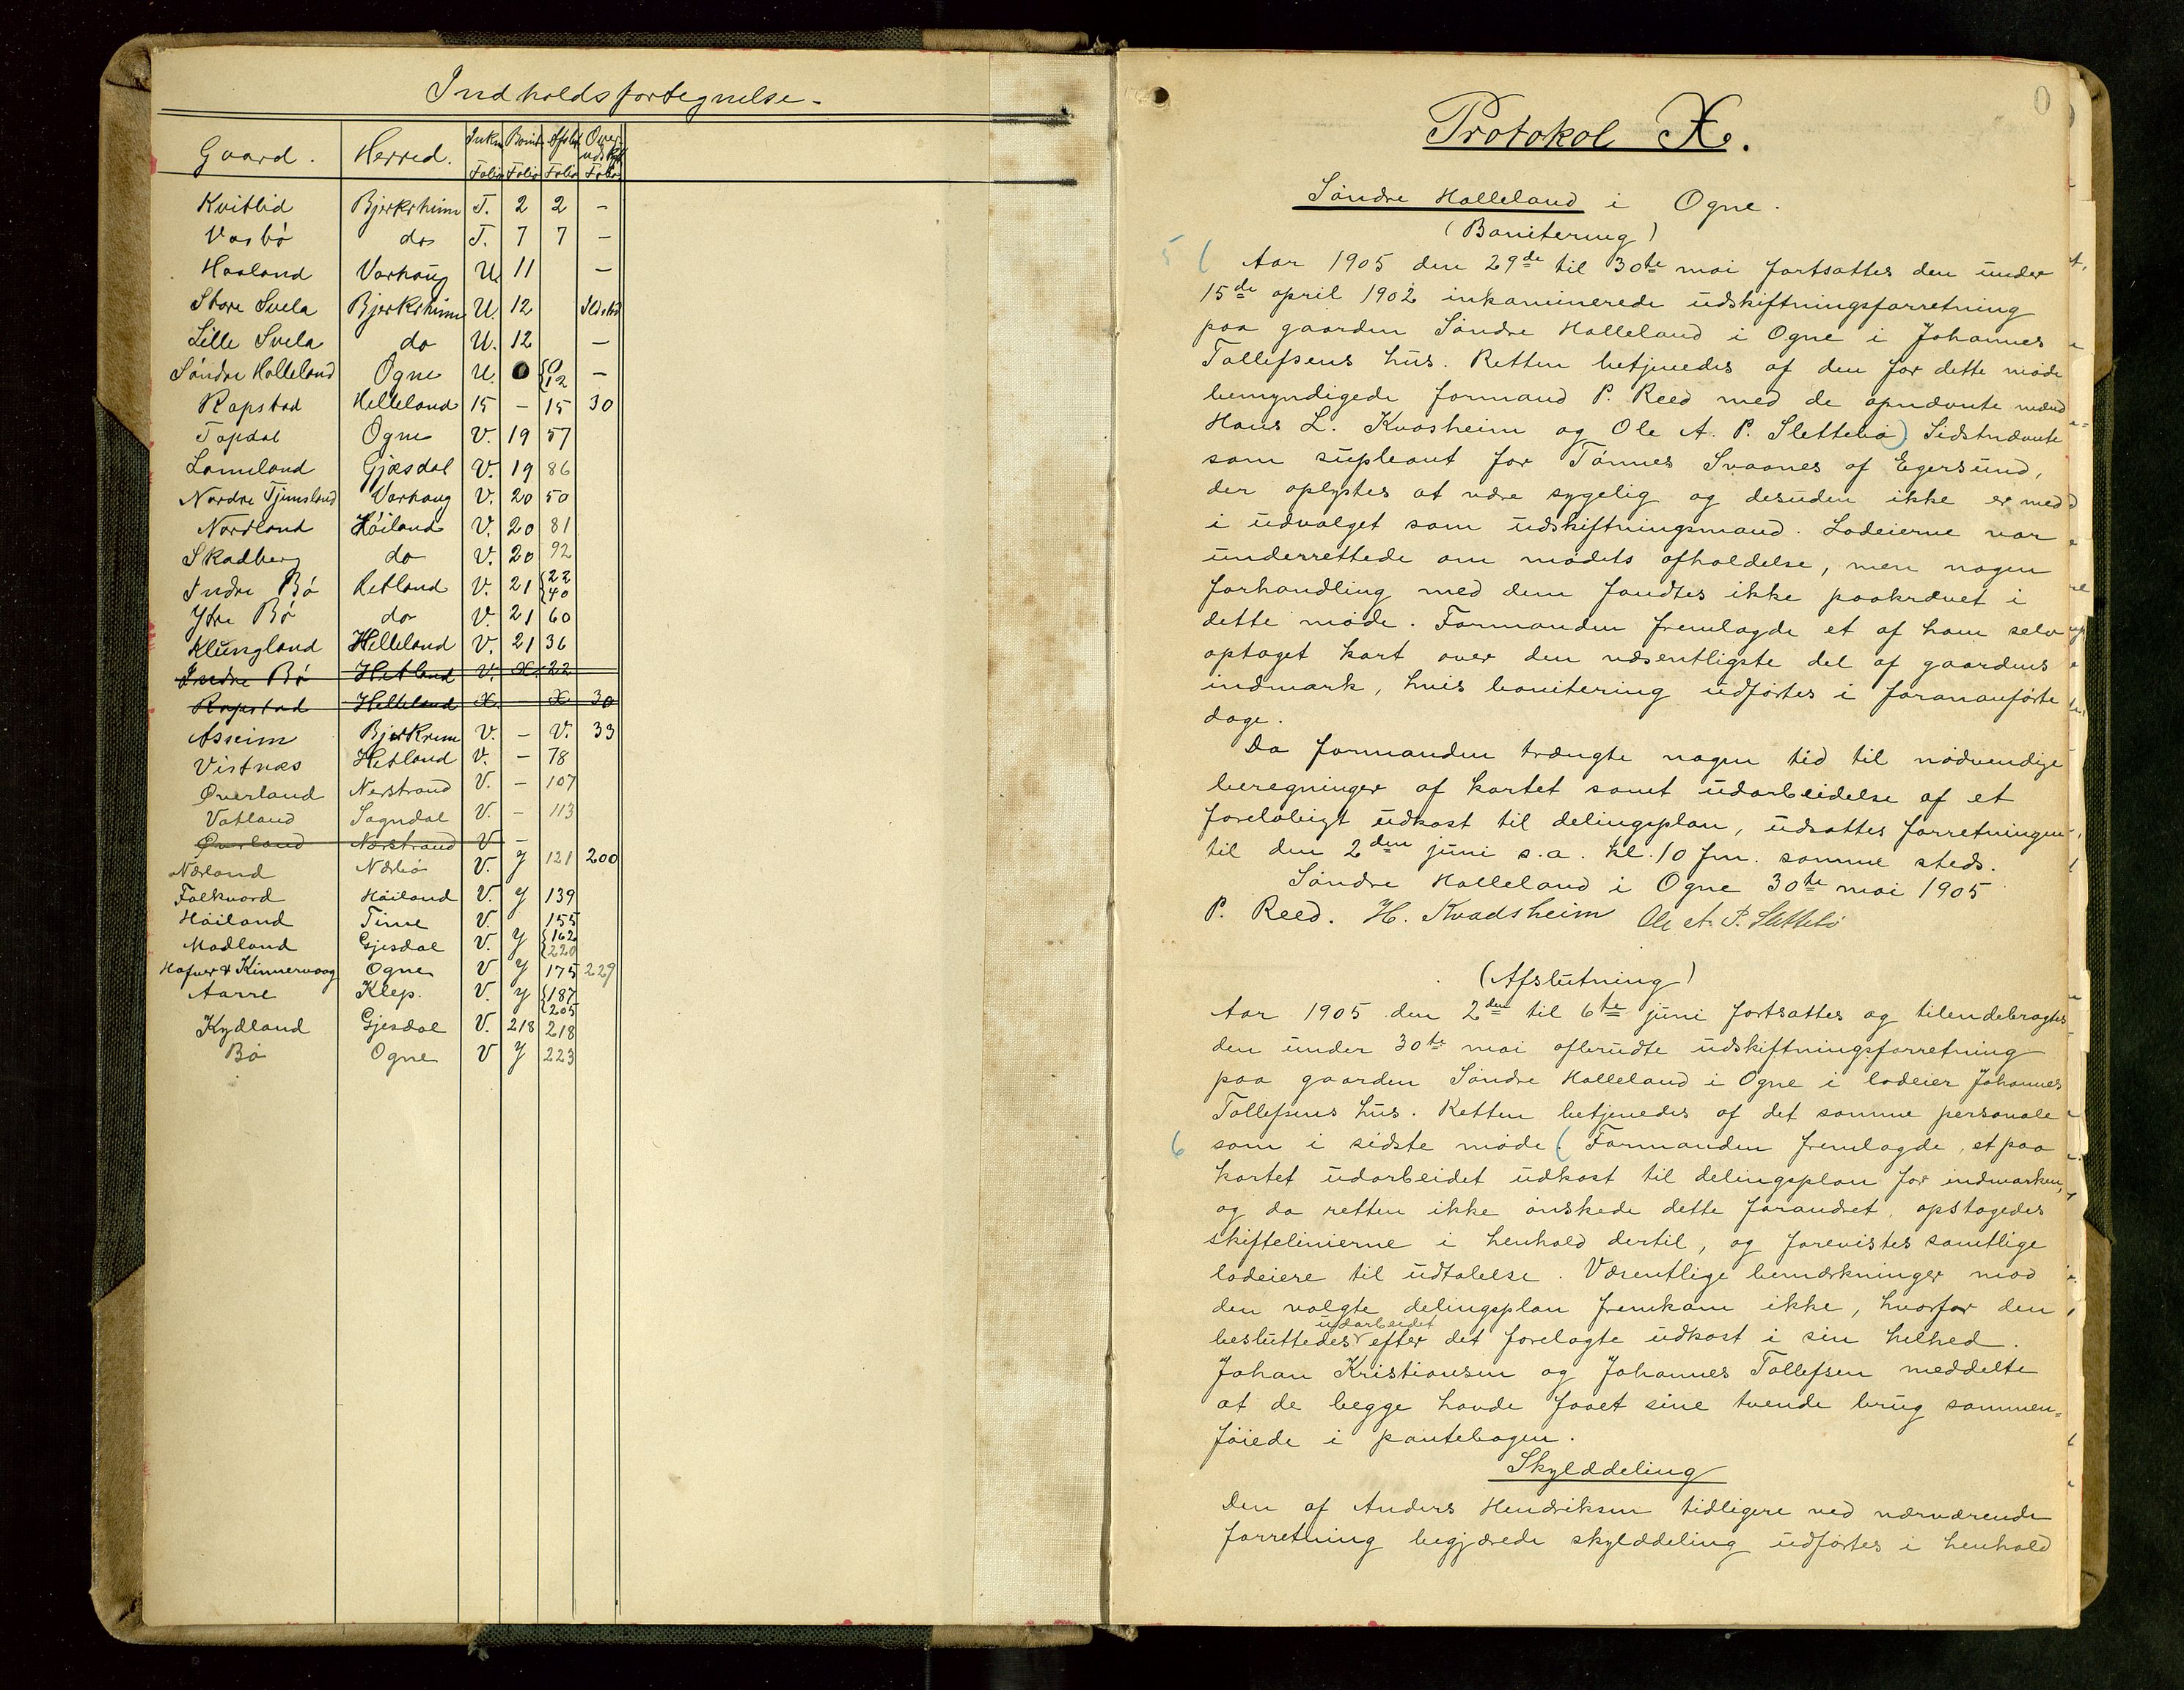 Indholdsfortegnelse.
Gaard. Herred. Inkm Folio Bonit Folio Afslut Folio Over udskft Folio
Kvitlid Bjerkrheim T. 2 2 –
Vasbö do T. 7 7 –
Haaland Varhaug U. 11 –
Store Svela Bjerkrheim U. 12
Lille Svela do U. 12 –
Söndre Halleland Ogne U. 0 {0 12 –
Rapstad Helleland 15 – 15 30
Tapdal Ogne V. 19 57
Lomeland Gjæsdal V. 19 86
Nordre Tjemsland Varhaug V. 20 50
Nordland Höiland V. 20 81
Skadberg do V. 20 92
Indre Bö Hetland V. 21 {22 40
Ytre Bö do V. 21 60
Klungland Helleland V. 21 36
Indre Bö Hetland V. X. 22
Rapstad Helleland X. – X 30
Asseim Bjerkrem V. – V. 33
Vistnæs Hetland V. – 78
Øverland Nerstrand V. – 107
Vatland Sogndal V. – 113
Øverland Nærstrand V –
Nærland Nærbö V. y 121 200
Folkvord Höiland V. y 139
Höiland Time V. 155
Madland Gjesdal V. y {162 220
Hafver & Kinnervaag Ogne V y 175 229
Aarre Klep. V. y {187 205
Kydland Gjesdal V. 218 218
Bö Ogne V y 223
0
Protokol X.
Söndre Halleland i Ogne.
(Bonitering)
5 ( Aar 1905 den 29de til 30te mai fortsattes den under
15de april 1902 inkaminerede udskiftningsforretning
paa gaarden Söndre Halleland i Ogne i Johannes
Tollefsens hus. Retten betjenedes af den for dette möde
bemyndigede formand P. Reed med de opnævnte mænd
Hans L. Kvasheim og Ole A. P. Slettebö) Sidstnævnte
som supleant for Tönnes Svaanes af Egersund,
der oplystes at være sygelig og desuden ikke er med
i udvalget som udskiftningsmand. Lodeierne var
underrettede om mödets afholdelse, men nogen
forhandling med dem fandtes ikke paakrævet i
dette möde. Formanden fremlagde et af ham selv
optaget kart over den væsentligste del af gaardens
indmark, hvis bonitering udförtes i forananförte
dage.
Da formanden trængte nogen tid til nödvendige
beregninger af kartet samt udarbeidelse af et
forelöbigt udkast til delingsplan, udsattes forretningen
til den 2den juni s.a. kl. 10 fm. samme steds.
Söndre Halleland i Ogne 30te mai 1905
P. Reed. H. Kvadsheim Ole A. P. Slettebö
(Afslutning)
Aar 1905 den 2den til 6te juni fortsattes og tilendebragtes
den under 30te mai afbrudte udskiftningsforretning
paa gaarden Söndre Halleland i Ogne i lodeier Johannes
Tollefsens hus. Retten betjenedes af det samme personale
6 som i sidste möde. ( Formanden fremlagde et paa
kartet udarbeidet udkast til delingsplan for indmarken,
og da retten ikke önskede dette forandret, opstagedes
skiftelinierne i henhold dertil, og forevistes samtlige
lodeiere til udtalelse. Væsentlige bemærkninger mod
den valgte delingsplan fremkom ikke, hvorfor den
udarbeidet
besluttedes efter det forelagte udkast i sin helhed.
Johan Kristiansen og Johannes Tollefsen meddelte
at de begge havde faaet sine tvende brug sammen=
föiede i pantebogen.
Skylddeling
Den af Anders Hendriksen tidligere ved nærværende
forretning begjærede skylddeling udförtes i henhold